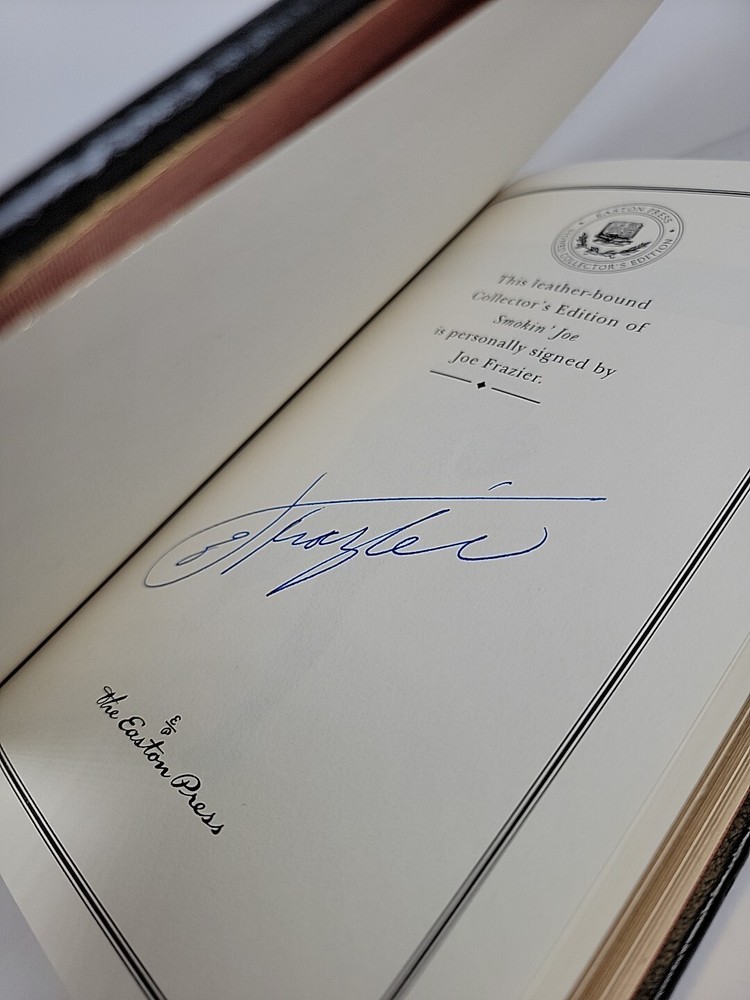 EASTON PRESS
SIGNED COLLECTOR'S EDITION
This leather-bound
Collector's Edition of
Smokin' Joe
is personally signed by
Joe Frazier.
J Frazier
E/P
the Easton Press